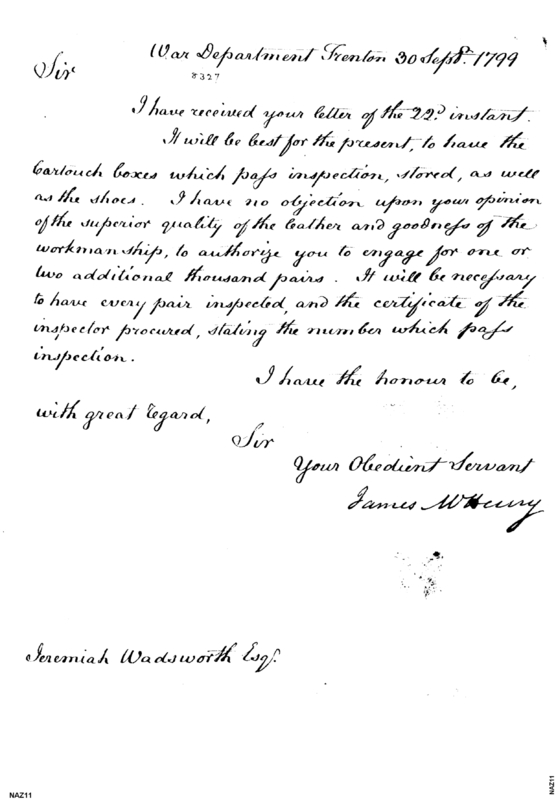 War Department Trenton 30 Septr. 1799
Sir
8327
I have received your letter of the 22d. instant.
It will be best for the present, to have the
Cartouch boxes which pass inspection, stored, as well
as the shoes. I have no objection upon your opinion
of the superior quality of the leather and goodness of the
workmanship, to authorize you to engage for one or
two additional thousand pairs. It will be necessary
to have every pair inspected, and the certificate of the
inspector procured, stating the number which pass
inspection.
I have the honour to be,
with great regard,
Sir
Your Obedient Servant
James McHenry
Jeremiah Wadsworth Esqr.
NAZ11
NAZ11